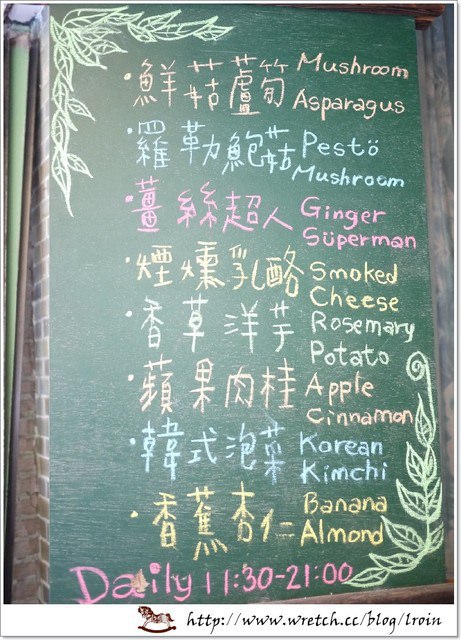 ·鮮菇蘆筍 Mushroom
Asparagus
·羅勒鮑菇 Pestö
Mushroom
·薑絲超人 Ginger
Süperman
·煙燻乳酪 Smoked
Cheese
·香草洋芋 Rosemary
Potato
·蘋果肉桂 Apple
Cinnamon
·韓式泡菜 Korean
Kimchi
·香蕉杏仁 Banana
Almond
Daily 11:30-21:00
http://www.wretch.cc/blog/lroin